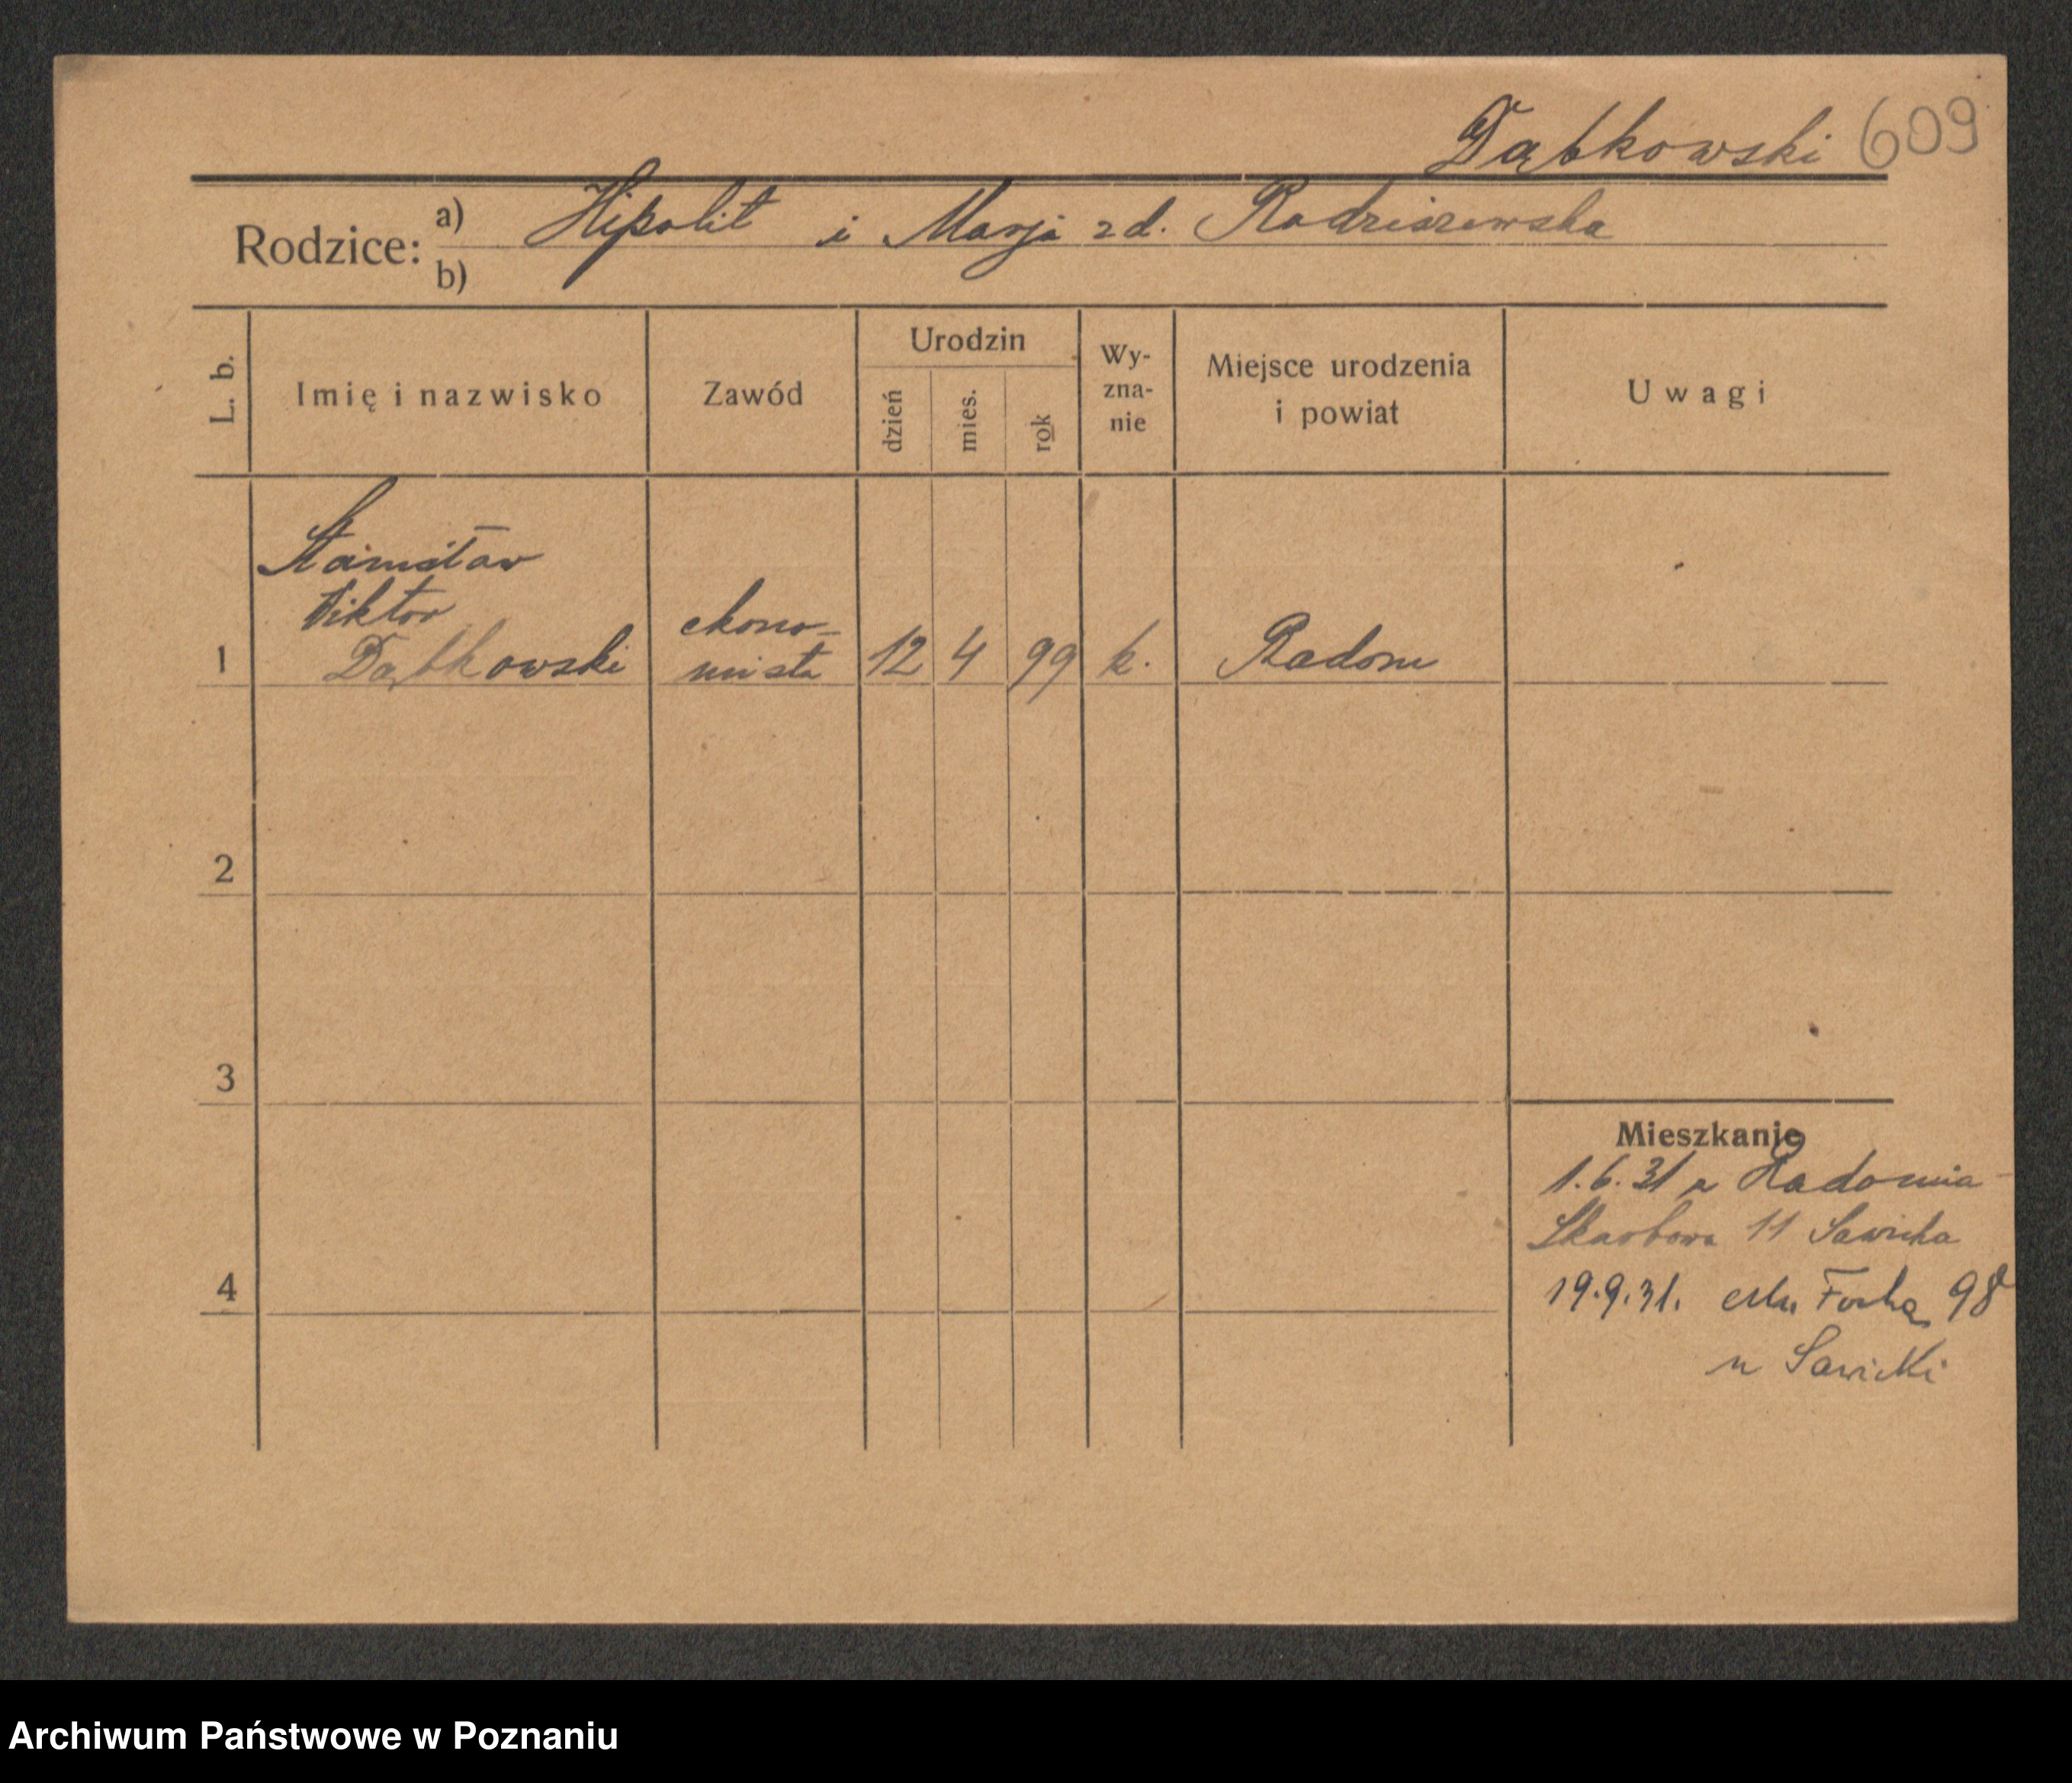 Dąbkowski 609
Rodzice: a) Hipolit i Marja zd. Radziszewska
b)
L. b. Imię i nazwisko Zawód Urodzin dzień mies. rok Wy-zna-nie Miejsce urodzenia i powiat Uwagi
Stanisław
Wiktor ekono-
1 Dąbkowski mista 12 4 99 k. Radom
2
3
Mieszkanie
1.6.31 z Radomia
Skarbowa 11 Sawicka
4
19.9.31. Focha 98
u Sawicki
Archiwum Państwowe w Poznaniu